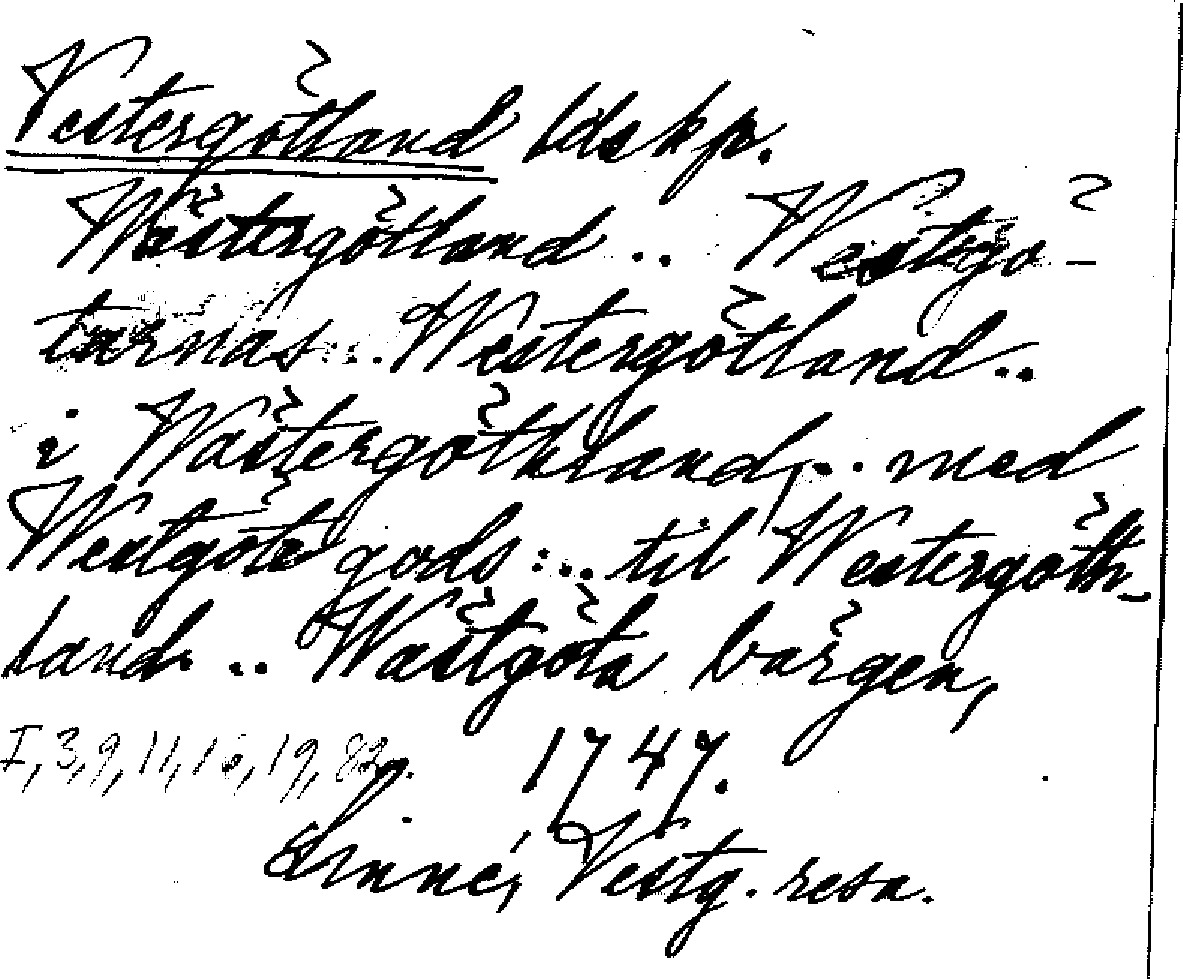 Vestergötland ldskp.
Wästergötland .. Westgö-
tarnas .. Westergötland ..
i Wästergöthland, .. med
Westgöta gods: .. til Westergöth-
land .. Wästgöta bärgen,
I, 3, 9, 11, 16, 19, 82. 1747.
Linné, Vestg. resa.